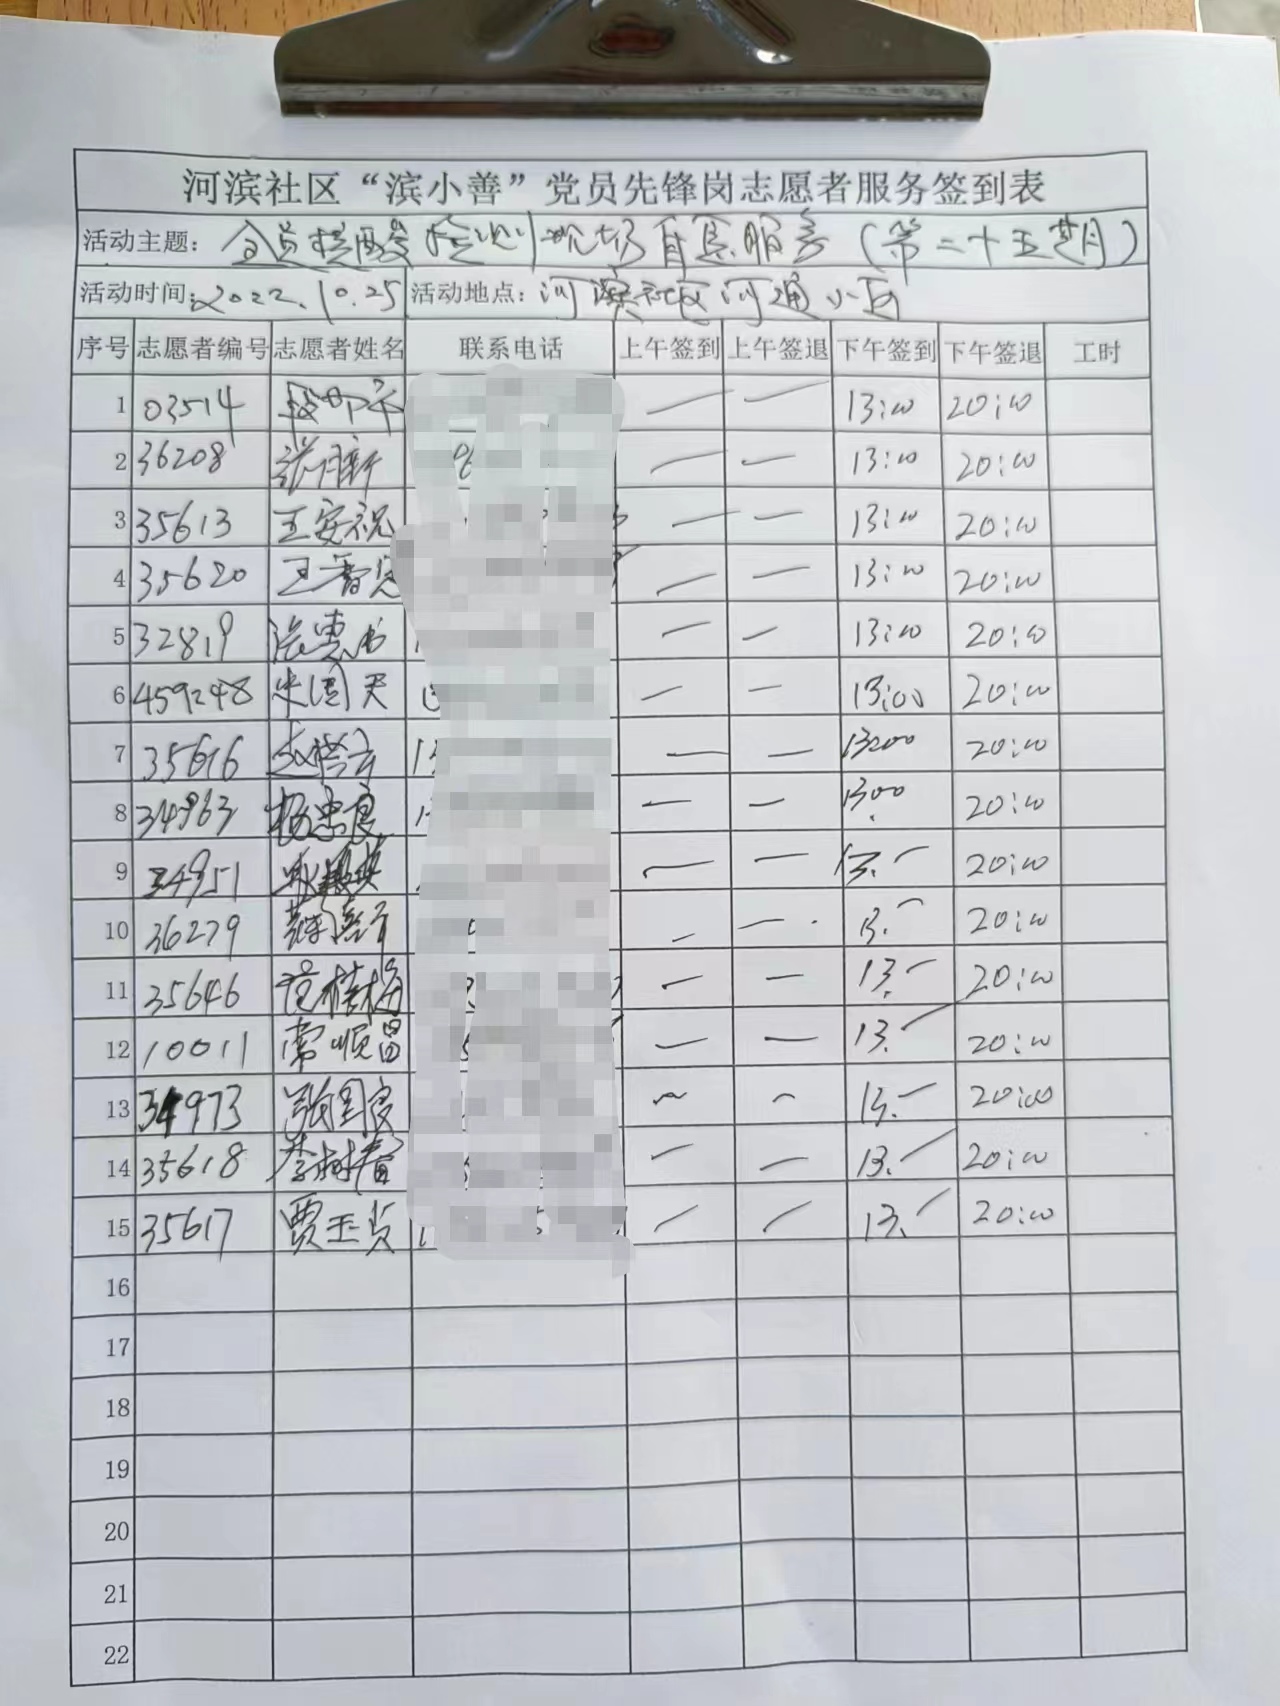 河滨社区“滨小善”党员先锋岗志愿者服务签到表
活动主题：全员核酸检测现场自愿服务（第二十五
活动时间：2022.10.25 活动地点：河滨社区河通小区
序号 志愿者编号 志愿者姓名 联系电话 上午签到 上午签退 下午签到 下午签退 工时
1 03514 — — 13:00 20:00
2 36208 张月新 — — 13:00 20:00
3 35613 王安祝 — — 13:00 20:00
4 35620 王 — — 13:00 20:00
5 32819 张惠 — — 13:00 20:00
6 459248 朱国天 — — 13:00 20:00
7 35616 — — 1300 20:00
8 34963 杨忠良 — — 1300 20:00
9 34951 — — 13.— 20:00
10 36279 — — 13.— 20:00
11 35646 范桂梅 — — 13.— 20:00
12 10011 常顺昌 — — 13.— 20:00
13 34973 张国良 — — 13.— 20:00
14 35618 李树春 — — 13.— 20:00
15 35617 贾玉贞 — — 13.— 20:00
16
17
18
19
20
21
22